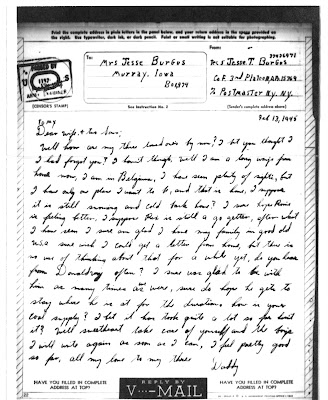 Print the complete address in plain letters in the panel below, and your return address in the space provided on the right. Use typewriter, dark ink, or dark pencil. Faint or small writing is not suitable for photographing.
To:
Mrs Jesse Burgus
Murray, Iowa
Box 174
From:
Jesse T. Burgus
Co F. 3rd Platoon, A.P.O. 15769
% Postmaster N.Y. N.Y.
(CENSOR'S STAMP)
See Instruction No. 2
(Sender's complete address above)
Feb 13, 1945
To my
Dear wife & two Sons;
Well how are my three loved ones by now? I bet you thought I
had forgot you? I haven't though, well I am a long ways from
home now, I am in Belgium, I have seen plenty of sights, but
I have only one place I want to be, and that is home, I suppose
it is still snowing and cold back home? I sure hope
is feeling better, I suppose Rex is still a go getter, after what
I have seen I sure am glad I have my family in good old
U.S.A. sure wish I could get a letter from home, but there is
no use of thinking about that for a while yet, do you hear
from Donald very often? I sure was glad to be with
him as many times as we were, sure do hope he gets to
stay where he is at for the duration, how is your
coal supply? I bet it has took quite a lot so far hasn't
it? Well sweetheart take care of yourself and the boys
I will write again as soon as I can, I feel pretty good
so far, all my love to my three
Daddy
HAVE YOU FILLED IN COMPLETE ADDRESS AT TOP?
REPLY BY
V···-MAIL
HAVE YOU FILLED IN COMPLETE ADDRESS AT TOP?